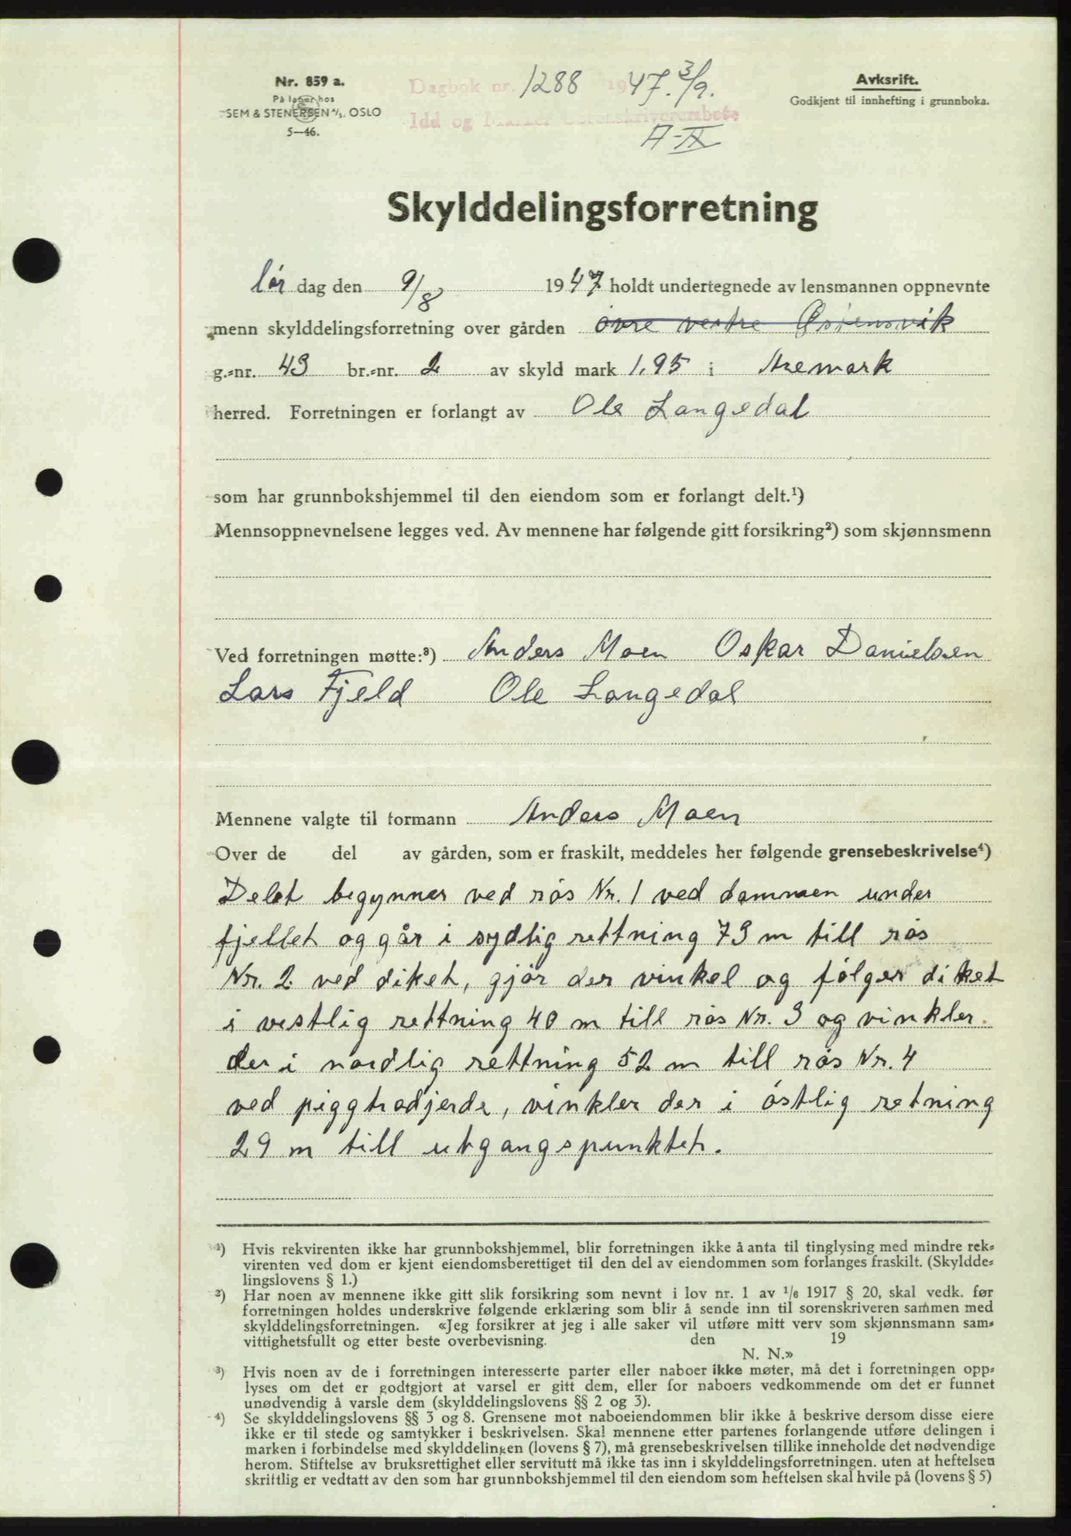 Nr. 859 a.
På lager hos
SEM & STENERSEN A/S. OSLO
5—46.
Dagbok nr. 1288 1947. 3/9.
Idd og Marker sorenskriverembete
A-IX
Avskrift.
Godkjent til innhefting i grunnboka.
Skylddelingsforretning
lør dag den 9/8 1947 holdt undertegnede av lensmannen oppnevnte
menn skylddelingsforretning over gården øvre vestre Østensvik
g.-nr. 43 br.-nr. 2 av skyld mark 1,95 i Aremark
herred. Forretningen er forlangt av Ole Langedal
som har grunnbokshjemmel til den eiendom som er forlangt delt.¹)
Mennsoppnevnelsene legges ved. Av mennene har følgende gitt forsikring²) som skjønnsmenn
Ved forretningen møtte:³) Anders Moen Oskar Danielsen
Lars Fjeld Ole Langedal
Mennene valgte til formann Anders Moen
Over de del av gården, som er fraskilt, meddeles her følgende grensebeskrivelse⁴)
Delet begynner ved rös Nr. 1 ved dammen under
fjellet og går i sydlig rettning 73 m till rös
Nr. 2 ved diket, gjör der vinkel og fölger diket
i vestlig rettning 40 m till rös Nr. 3 og vinkler
der i nordlig rettning 52 m till rös Nr. 4
ved piggtrådjerde, vinkler der i östlig retning
29 m till utgangspunktet.
¹) Hvis rekvirenten ikke har grunnbokshjemmel, blir forretningen ikke å anta til tinglysing med mindre rek-
virenten ved dom er kjent eiendomsberettiget til den del av eiendommen som forlanges fraskilt. (Skyldde-
lingslovens § 1.)
²) Har noen av mennene ikke gitt slik forsikring som nevnt i lov nr. 1 av 1/6 1917 § 20, skal vedk. før
forretningen holdes underskrive følgende erklæring som blir å sende inn til sorenskriveren sammen med
skylddelingsforretningen. «Jeg forsikrer at jeg i alle saker vil utføre mitt verv som skjønnsmann sam-
vittighetsfullt og etter beste overbevisning. den 19
N. N.»
³) Hvis noen av de i forretningen interesserte parter eller naboer ikke møter, må det i forretningen opp-
lyses om det er godtgjort at varsel er gitt dem, eller for naboers vedkommende om det er funnet
unødvendig å varsle dem (skylddelingslovens §§ 2 og 3).
⁴) Se skylddelingslovens §§ 3 og 8. Grensene mot naboeiendommen blir ikke å beskrive dersom disse eiere
ikke er til stede og samtykker i beskrivelsen. Skal mennene etter partenes forlangende utføre delingen i
marken i forbindelse med skylddelingen (lovens § 7), må grensebeskrivelsen tillike inneholde det nødvendige
herom. Stiftelse av bruksrettighet eller servitutt må ikke tas inn i skylddelingsforretningen. uten at heftelsen
skriftlig er vedtatt av den som har grunnbokshjemmel til den eiendom som heftelsen skal hvile på (lovens § 5)